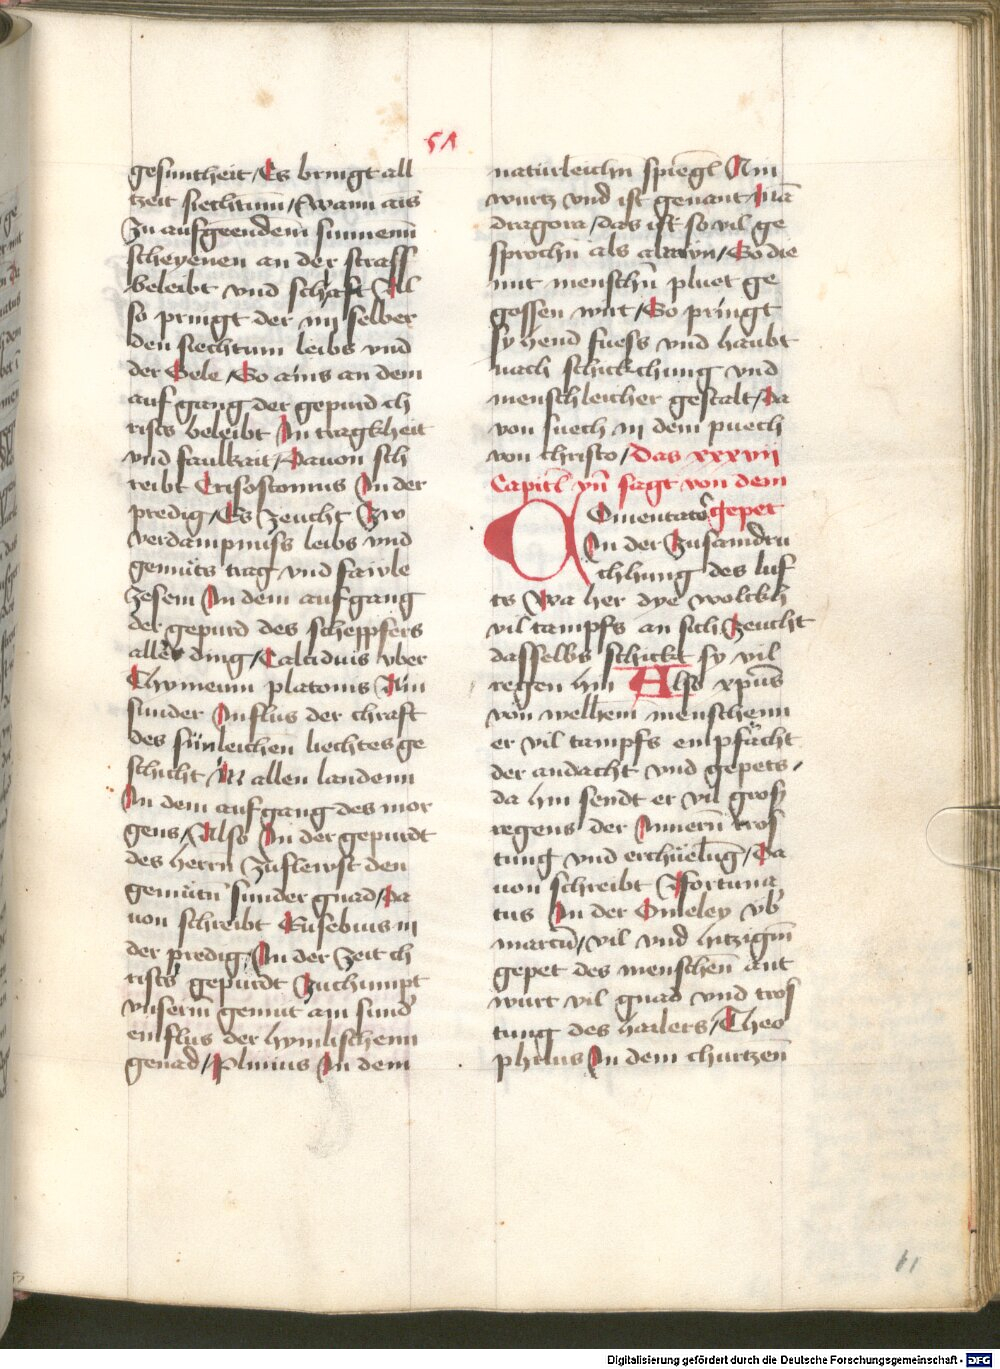 51
gesuntheit / Es bringt all
tzeit siechtumm / Swann ains
Zu aufgeendem sunnenn
scheyenen an der strass
beleibt vnd schlaft All
so pringt der im selber
den siechtum leibs vnd
der Sele / So ains an dem
auf gang der gepurd ch
rists beleibt In tragkheit
vnd faulkait / Dauon sch
reibt Crisostomus In der
predig / Es Zeucht Zw
verdampnuss leibs vnd
gemüts trag vnd fawle
Wesem In dem auf gang
der gepurd des scheppfers
aller ding / Calcidius vber
Thymeum platonis Ain
sunder Influs der chraft
des sünleichen liechtes ge
schicht In allen landenn
In dem auf gang des mor
gens / Also In der gepurdt
des herrn Zuflewst den
gemütn sunder gnad / Da
uon schreibt Eusebius in
der predig / In der Zeit ch
rists gepurdt Zuchumpt
vnserm gemut ain sund
einflus der hymlischenn
genad / Plinius In dem
naturleichn spiegl Ain
wurtz vnd ist genant Man
dragora / das ist so vil ge
sprochn als alrayn / So die
mit menschn pluet ge
gossen wirt / So pringt
sy hend fuess vnd haubt
nach schickchung vnd
menschleicher gestalt / Da
von suech in dem puech
von christo / Das xxxvii
Capitl vn sagt von dem
Omentator gepet
In der Zusamdru
chhung des luf
ts Wa her dye wolckh
vil tampfs an sich Zeucht
dasselbs schickt sy vil
regen hin Also xpus
von welhem menschenn
er vil tampfs enpfächt
der andacht vnd gepets /
da hin sendt er vil gross
regens der Innern tros
tung vnd erchüelug / Da
uon schreibt Ffortuna
tus In der Omeley vb
marcu / vil vnd hitzigm
gepet des menschen ant
wurt vil gnad vnd tros
tung des hailers / Theo
philus In dem churtzen
61
Digitalisierung gefördert durch die Deutsche Forschungsgemeinschaft - DFG